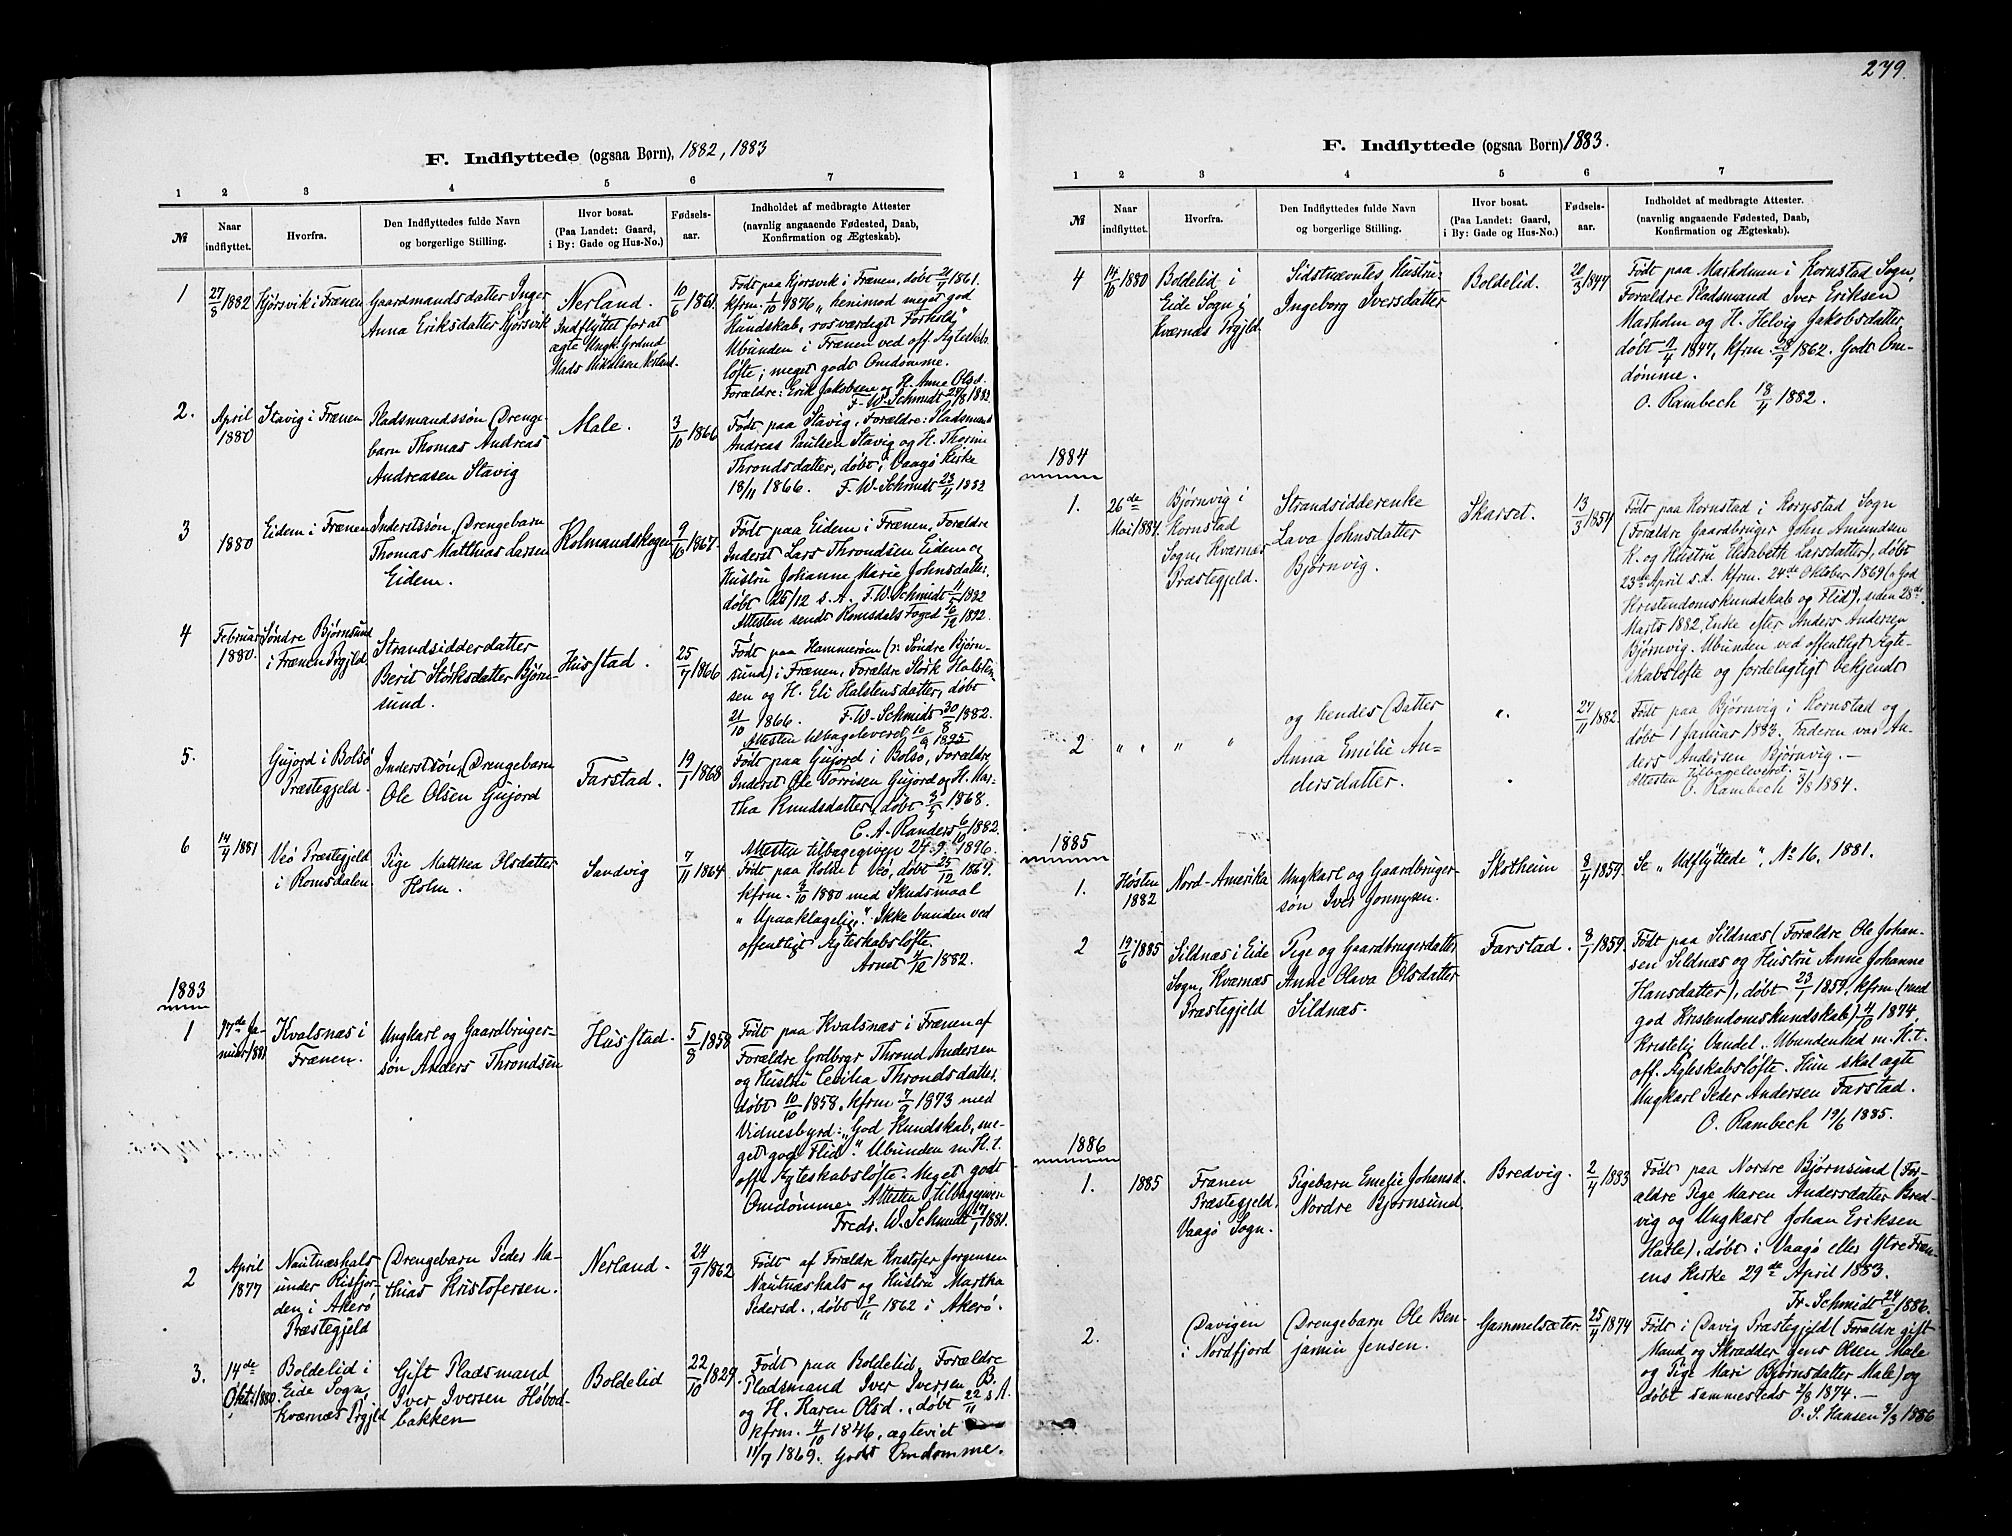 F. Indflyttede (ogsaa Børn), 1882, 1883
1 2 3 4 5 6 7
№
Naar indflyttet.
Hvorfra.
Den Indflyttedes fulde Navn
og borgerlige Stilling.
Hvor bosat.
(Paa Landet: Gaard,
i By: Gade og Hus-No.)
Fødsels-
aar.
Indholdet af medbragte Attester
(navnlig angaaende Fødested, Daab,
Konfirmation og Ægteskab).
1
27/8 1882
Hjørsvik i Frænen
Gaardmandsdatter Inger
Anna Eriksdatter Hjørsvik
Nerland.
Indflyttet for at
ægte Ungk. Grdmd
Mads Nikolsen Nerland.
10/6 1861
Født paa Hjorsvik i Frænen, døbt 21/7 1861.
kfrm. 1/10 1876, henimod meget god
Kundskab, rosværdigt Forhold"
Ubunden i Frænen ved off. Ægteskabs
løfte; meget godt Omdømme.
Forældre: Erik Jakobsen og H. Anne Olsd.
F. W. Schmidt 27/8 1882
2.
April
1880
Stavig i Frænen
Pladsmandssøn (Drenge-
barn Thomas Andreas
Andreasen Stavig
Male.
3/10 1866
Født paa Stavig, Forældre: Pladsmand
Andreas Paulsen Stavig og H. Thorine
Throndsdatter, døbt i Vaagø Kirke
18/11 1866. F. W. Schmidt 23/11 1882
3
1880
Eidem i Frænen
Inderstssøn, Drengebarn
Thomas Matthias Larsen
Eidem.
Kolmandskogen
9/10 1867.
Født paa Eidem i Frænen, Forældre
Inderst Lars Throndsen Eidem og
Hustru Johanne Marie Johnsdatter,
døbt 26/12 s. A. F. W. Schmidt 1882
Attesten sendt Romsdals Foged 1892.
4
Februar
1880.
Søndre Bjørnsund
i Frænen Prgjld.
Strandsidderdatter
Berit Størksdatter Bjørn-
sund.
Husstad.
25/7 1866
Født paa Hammerøen (ɔ: Søndre Bjørn-
sund) i Frænen, Forældre Størk Halsten-
sen og H. Eli Halstensdatter, døbt
21/10 1866. F. W. Schmidt 30/8 1882.
Attesten tilbageleveret 10/9 1895
5.
Gujord i Bolsø
Præstegjeld.
Inderstsøn, Drengebarn
Ole Olsen Gujord
Farstad.
19/1 1868
Født paa Gujord i Bolsø, Forældre
Inderst Ole Torrisen Gujord og H. Mar-
tha Knudsdatter, døbt 3/5 1868.
C. A. Randers 6/10 1882.
6
14/4 1881
Veø Præstegjeld
i Romsdalen.
Pige Matthea Olsdatter
Holm.
Sandvig
7/11 1864
Attesten tilbagegiven 24. 9. 1896.
Født paa Holm i Veø, døbt 25/12 1864.
kfrm. 3/10 1880 med Skudsmaal
"Upaaklagelige". Ikke bunden ved
offentligt Ægteskabsløfte.
Arnet 4/12 1882.
1883
1
17de Ja-
nuar 1881
Kvalsnæs i
Frænen.
Ungkarl og Gaardbruger-
søn Anders Throndsen
Husstad.
5/8 1858
Født paa Kvalsnæs i Frænen af
Forældre Grdbrgr Thrond Andersen
og Hustru Cecilia Throndsdatter,
døbt 10/10 1858, kfrm 7/9 1873 med
Vidnesbyrd: „God Kundskab, me-
get god Flid". Ubunden m. H. t.
offl. Ægteskabsløfte. Meget godt
Omdømme. Attesten tilbagegiven
Fredr. W. Schmidt 17/1 1881.
2
April
1877
Nautnæshals
under Risfjor-
den i Akerø
Præstegjeld
Drengebarn Peder Ma-
thias Kristofersen.
Nerland.
24/9 1862
Født af Forældre Kristofer Jørgensen
Nautnæshals og Hustru Martha
Pedersd., døbt 9/11 1862 i Akerø.
3.
14de
Oktr. 1880.
Boldelid i
Eide Sogn,
Kværnæs Prgjld
Gift Pladsmand
Iver Iversen Høbod-
bakken
Boldelid
22/10 1829.
Født paa Boldelid, Forældre
Pladsmand Iver Iversen B.
og H. Karen Olsd., døbt 22/11 s. A.
kfrm. 4/10 1846, ægteviet
11/7 1869. Godt Omdømme.
279.
F. Indflyttede (ogsaa Børn) 1883.
1 2 3 4 5 6 7
№
Naar
indflyttet.
Hvorfra.
Den Indflyttedes fulde Navn
og borgerlige Stilling.
Hvor bosat.
(Paa Landet: Gaard,
i By: Gade og Hus-No.)
Fødsels-
aar.
Indholdet af medbragte Attester.
(navnlig angaaende Fødested, Daab,
Konfirmation og Ægteskab).
4
14/10 1880
Boldelid i
Eide Sogn i
Kværnæs Prgjeld
Sidstnævntes Hustru:
Ingeborg Iversdatter
Boldelid.
20/3 1847
Født paa Marholmen i Kornstad Sogn,
Forældre Pladsmand Iver Eriksen
Marholm og H. Helvig Jakobsdatter,
døbt 1847, kfrm. 1862. Godt Om-
dømme.
O. Rambech 18/4 1882.
1884
1.
26de
Mai 1884.
Bjørnvig i
Kornstad
Sogn, Kværnæs
Præstegjeld.
Strandsidderenke
Lava Johnsdatter
Bjørnvig.
Skarset.
13/3 1854
Født paa Kornstad i Kornstad Sogn
(Forældre Gaardbruger John Amundsen
K. og Hustru Elisabeth Larsdatter), døbt
23de April s. A. kfrm. 24de Oktober 1869 („God
Kristendomskundskab og Flid"), siden 28de
Marts 1882, Enke efter Anders Andersen
Bjørnvig. Ubunden ved offentligt Ægte-
skabsløfte og fordelagtigt bekjendt
2 " " " "
og hendes Datter
Anna Emilie An-
dersdatter.
".
27/11 1882.
Født paa Bjørnvig i Kornstad og
døbt 1 Januar 1883. Faderen var An-
ders Andersen Bjørnvig. –
Attesten tilbageleveret.
O. Rambech 3/8 1884.
1885
1.
Høsten
1882
Nord-Amerika
Ungkarl og Gaardbruger-
søn Iver Jonnysen.
Skotheim
8/4 1859
Se „Udflyttede", No 16, 1881.
2
19/6 1885
Sildnæs i Eide
Sogn, Kværnæs
Præstegjeld
Pige og Gaardbrugerdatter
Anne Olava Olsdatter
Sildnæs.
Farstad.
8/1 1859
Født paa Sildnæs (Forældre Ole Johan-
sen Sildnæs og Hustru Anne Johanne
Hansdatter), døbt 23/1 1859, kfrm. (med
god Kristendomskundskab) 4/10 1874,
Kristelig Vandel. Ubundenhed m. H. t.
off. Ægteskabsløfte. Hun skal ægte
Ungkarl Peder Andersen Farstad.
O. Rambech 19/6 1885.
1886
1.
1885
Frænen
Præstegjeld,
Vaagø Sogn.
Pigebarn Emelie Johansd.
Nordre Bjørnsund.
Bredvig.
2/4 1883
Født paa Nordre Bjørnsund (For-
ældre Pige Maren Andersdatter Bred-
vig og Ungkarl Johan Eriksen
Harle), døbt i Vaagø eller Ytre Fræn-
ens Kirke 29de April 1883.
Fr. Schmidt 24/2 1886.
2.
Davigen
i Nordfjord
Drengebarn Ole Ben-
jamin Jensen.
Gammelsæter.
25/4 1874
Født i Davig Præstegjeld (Forældre gift
Mand og Skrædder Jens Olsen Male
og Pige Mari Bjørnsdatter Male) og
døbt sammesteds 2/8 1874. –
O. S. Hansen 3/3 1886